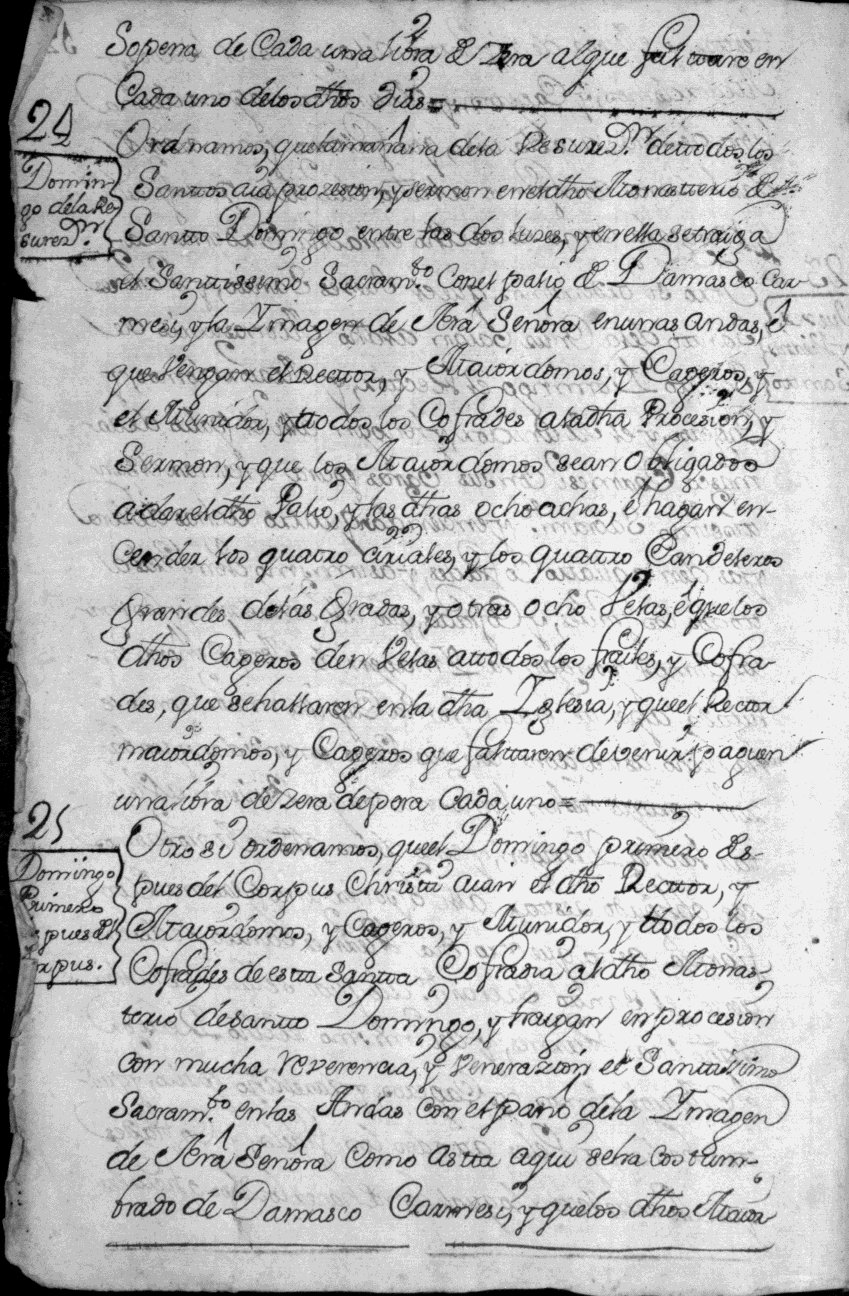 Sopena de Cada una libra de Zera alque faltare en
Cada uno delos dhos dias =
24
Domin-
go dela Re-
surezn.
Ordnamos, quela mañana dela Resurezn. detodos los
Santtos aia prozesion, y sermon enel dho Monastterio de
Santto Domingo entre las dos luzes, y en ella se traiga
el Santtissimo Sacramto. Con el palio de Damasco Car-
mesi, y la Imagen de Nrâ Señora en unas andas, é
que Vengan el Recttor, y Maiordomos, y Cageros, y
el Munidor, y ttodos los Cofrades ala dha Procesion, y
Sermon, y que los Maiordomos sean obligados
a dar el dho Palio, y las dhas ocho achas, é hagan en-
cender los quatro ciriales, y los quattro Candeleros
grandes delas gradas, y otras ocho Velas, é que los
dhos Cageros den Velas a ttodos los frailes, y Cofra-
des, que se hallaren en la dha Iglesia, y que el Rector
maiordomos, y Cageros que falttaren de venir paguen
una libra de Zera de pena Cada uno =
25
Domingo
Primero
pues del
orpus.
Otro si ordenamos, que el Domingo primero des-
pues del Corpus Christti aian el dho Recttor, y
Maiordomos, y Cageros, y Munidor, y ttodos los
Cofrades de estta Santta Cofradia al dho Monas-
terio de Santto Domingo, y traigan en procesion
con mucha reverencia, y Venerazion el Santtissimo
Sacramto. en las Andas con el paño dela Imagen
de Nrâ Señora Como astta aqui se ha costum-
brado de Damasco Carmesi, y que los dhos Maior